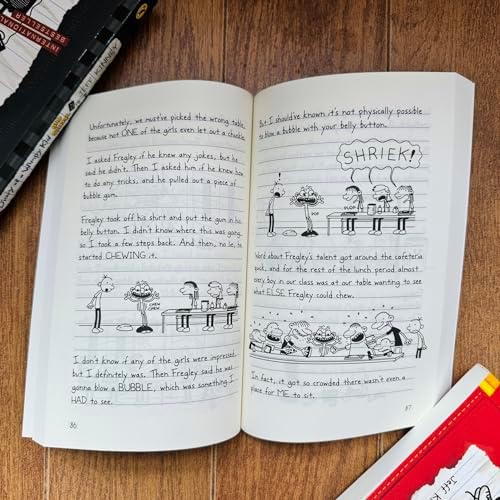 INTERNATIONAL
BESTSELLER
JEFF KINNEY
Unfortunately, we must've picked the wrong table,
because not ONE of the girls even let out a chuckle.
I asked Fregley if he knew any jokes, but he
said he didn't. Then I asked him if he knew how
to do any tricks, and he pulled out a piece of
bubble gum.
Fregley took off his shirt and put the gum in his
belly button. I didn't know where this was going,
so I took a few steps back. And then, no lie, he
started CHEWING it.
CHEW
CHEW
I don't know if any of the girls were impressed,
but I definitely was. Then Fregley said he was
gonna blow a BUBBLE, which was something I
HAD to see.
86
But I should've known it's not physically possible
to blow a bubble with your belly button.
SHRIEK!
PLOP
POP
Word about Fregley's talent got around the cafeteria
quick, and for the rest of the lunch period almost
every boy in our class was at our table wanting to see
what ELSE Fregley could chew.
In fact, it got so crowded there wasn't even a
place for ME to sit.
87
Jeff K